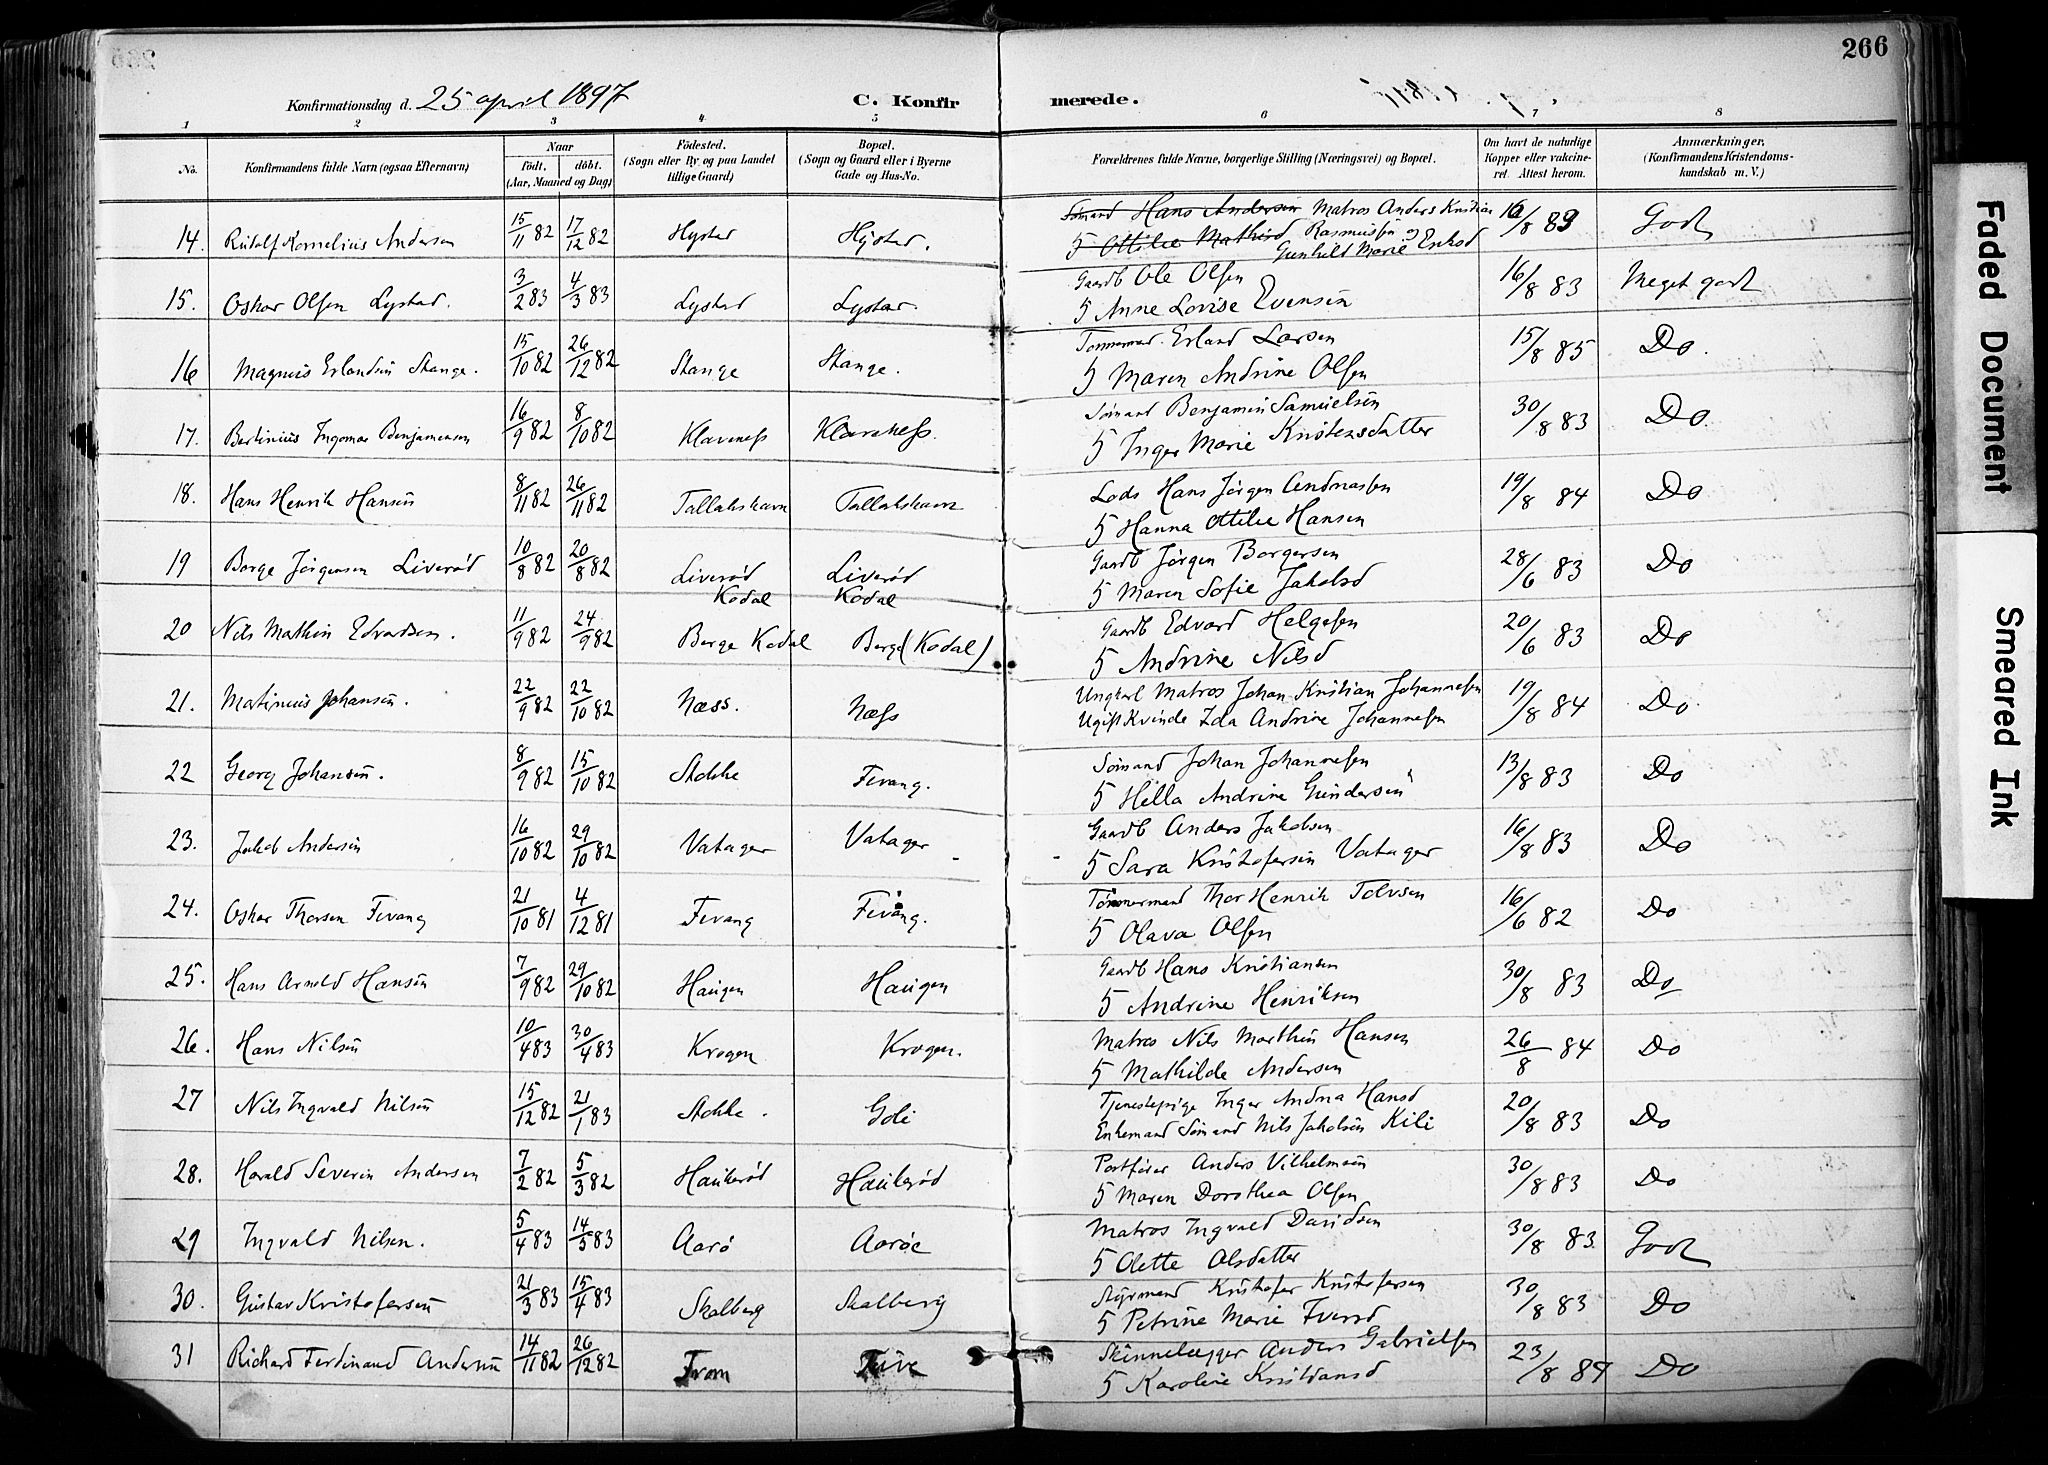 266
Konfirmationsdag d. 25 april 1897 C. Konfirmerede.
1 2 3 4 5 6 7 8
No. Konfirmandens fulde Navn (ogsaa Efternavn) Naar Födt. döbt. (Aar, Maaned og Dag) Födested. (Sogn eller By og paa Landet tillige Gaard) Bopæl. (Sogn og Gaard eller i Byerne Gade og Hus-No. Forældrenes fulde Navne, borgerlige Stilling (Næringsvei) og Bopæl. Om havt de naturlige Kopper eller vakcineret. Attest herom. Anmærkninger, (Konfirmandens Kristendomskundskab m. V.)
Sömand Hans Andersen Matros Anders Kristian
14. Rudolf Kornelius Andersen 15/11 82 17/12 82 Hystad Hystad. 5 Ottilie Mathisd Rasmussen og Gunhild Marie Enksd 16/8 83 Godt
15. Oskar Olsen Lystad. 3/2 83 4/3 83 Lystad Lystad. Gaardb Ole Olsen 16/8 83 Meget godt
5 Anne Lovise Evensen
16 Magnus Erlandsen Stange. 15/10 82 26/12 82 Stange Stange. Tømmermd. Erland Larsen 15/8 85 Do.
5 Maren Andrine Olsen
17. Bertinius Ingomar Benjaminsen 16/9 82 8/10 82 Klavness Klavness. Sömand Benjamin Samuelsen 30/8 83 Do.
5 Inger Marie Kristensdatter
18. Hans Henrik Hansen 8/11 82 26/11 82 Tallakshavn Tallakshavn Lods Hans Jörgen Andreassen 19/8 84 Do
5 Hanna Ottilie Hansen
19 Borge Jörgensen Liveröd 10/8 82 20/8 82 Liveröd Kodal Liveröd Kodal Gaardb Jörgen Borgersen 28/6 83 Do
5 Maren Sofie Jakobsd
20 Nils Mathin Edvardsen. 11/9 82 24/9 82 Berge Kodal Berge (Kodal) Gaardb Edvard Helgesen 20/6 83 Do
5 Andrine Nilsd
21. Martinius Johansen. 22/9 82 22/10 82 Næss. Næss Ungkarl Matros Johan Kristian Johannessen 19/8 84 Do.
Ugift Kvinde Ida Andrine Johannesen
22 Georg Johansen. 8/9 82 15/10 82 Stokke Fevang. Sömand Johan Johannesen 13/8 83 Do
5 Hella Andrine Gundersen
23. Jakob Andersen 16/10 82 29/10 82 Vatager Vatager Gaardb Anders Jakobsen 16/8 83 Do
5 Sara Kristofersen Vatager
24. Oskar Thorsen Fevang 21/10 81 4/12 81 Fevang Fevang. Tömmermand Thor Henrik Tolvsen 16/6 82 Do
5 Olava Olsen
25. Hans Arnold Hansen 7/9 82 29/10 82 Haugen Haugen Gaardb Hans Kristiansen 30/8 83 Do
5 Andrine Henriksen
26. Hans Nilsen 10/4 83 30/4 83 Krogen Krogen. Matros Nils Marthin Hansen 26/8 84 Do
5 Mathilde Andersen
27 Nils Ingvald Nilsen 15/12 82 21/1 83 Stokke. Goli Tjenestepige Inger Andrea Hansd 20/8 83 Do
Enkemand Sömand Nils Jakobsen Kili
28. Harald Severin Andersen 7/2 82 5/3 82 Haukeröd Haukeröd Anders Vilhelmsen 30/8 83 Do
5 Maren Dorothea Olsen
29 Ingvald Nilsen. 5/4 83 14/5 83 Aarö Aaröe Matros Ingvald Davidsen 30/8 83. Godt
5 Olette Olsdatter
30. Gustav Kristofersen 21/3 83 15/4 83 Skalberg Skalberg Styrmand Kristofer Kristofersen 30/8 83 Do
5 Petrine Marie Iversd
31 Richard Ferdinand Andersen 14/11 82 26/12 82 Fram Anders Gabrielsen 23/8 84 Do
5 Karoline Kristiansd
Faded Document
Smeared Ink